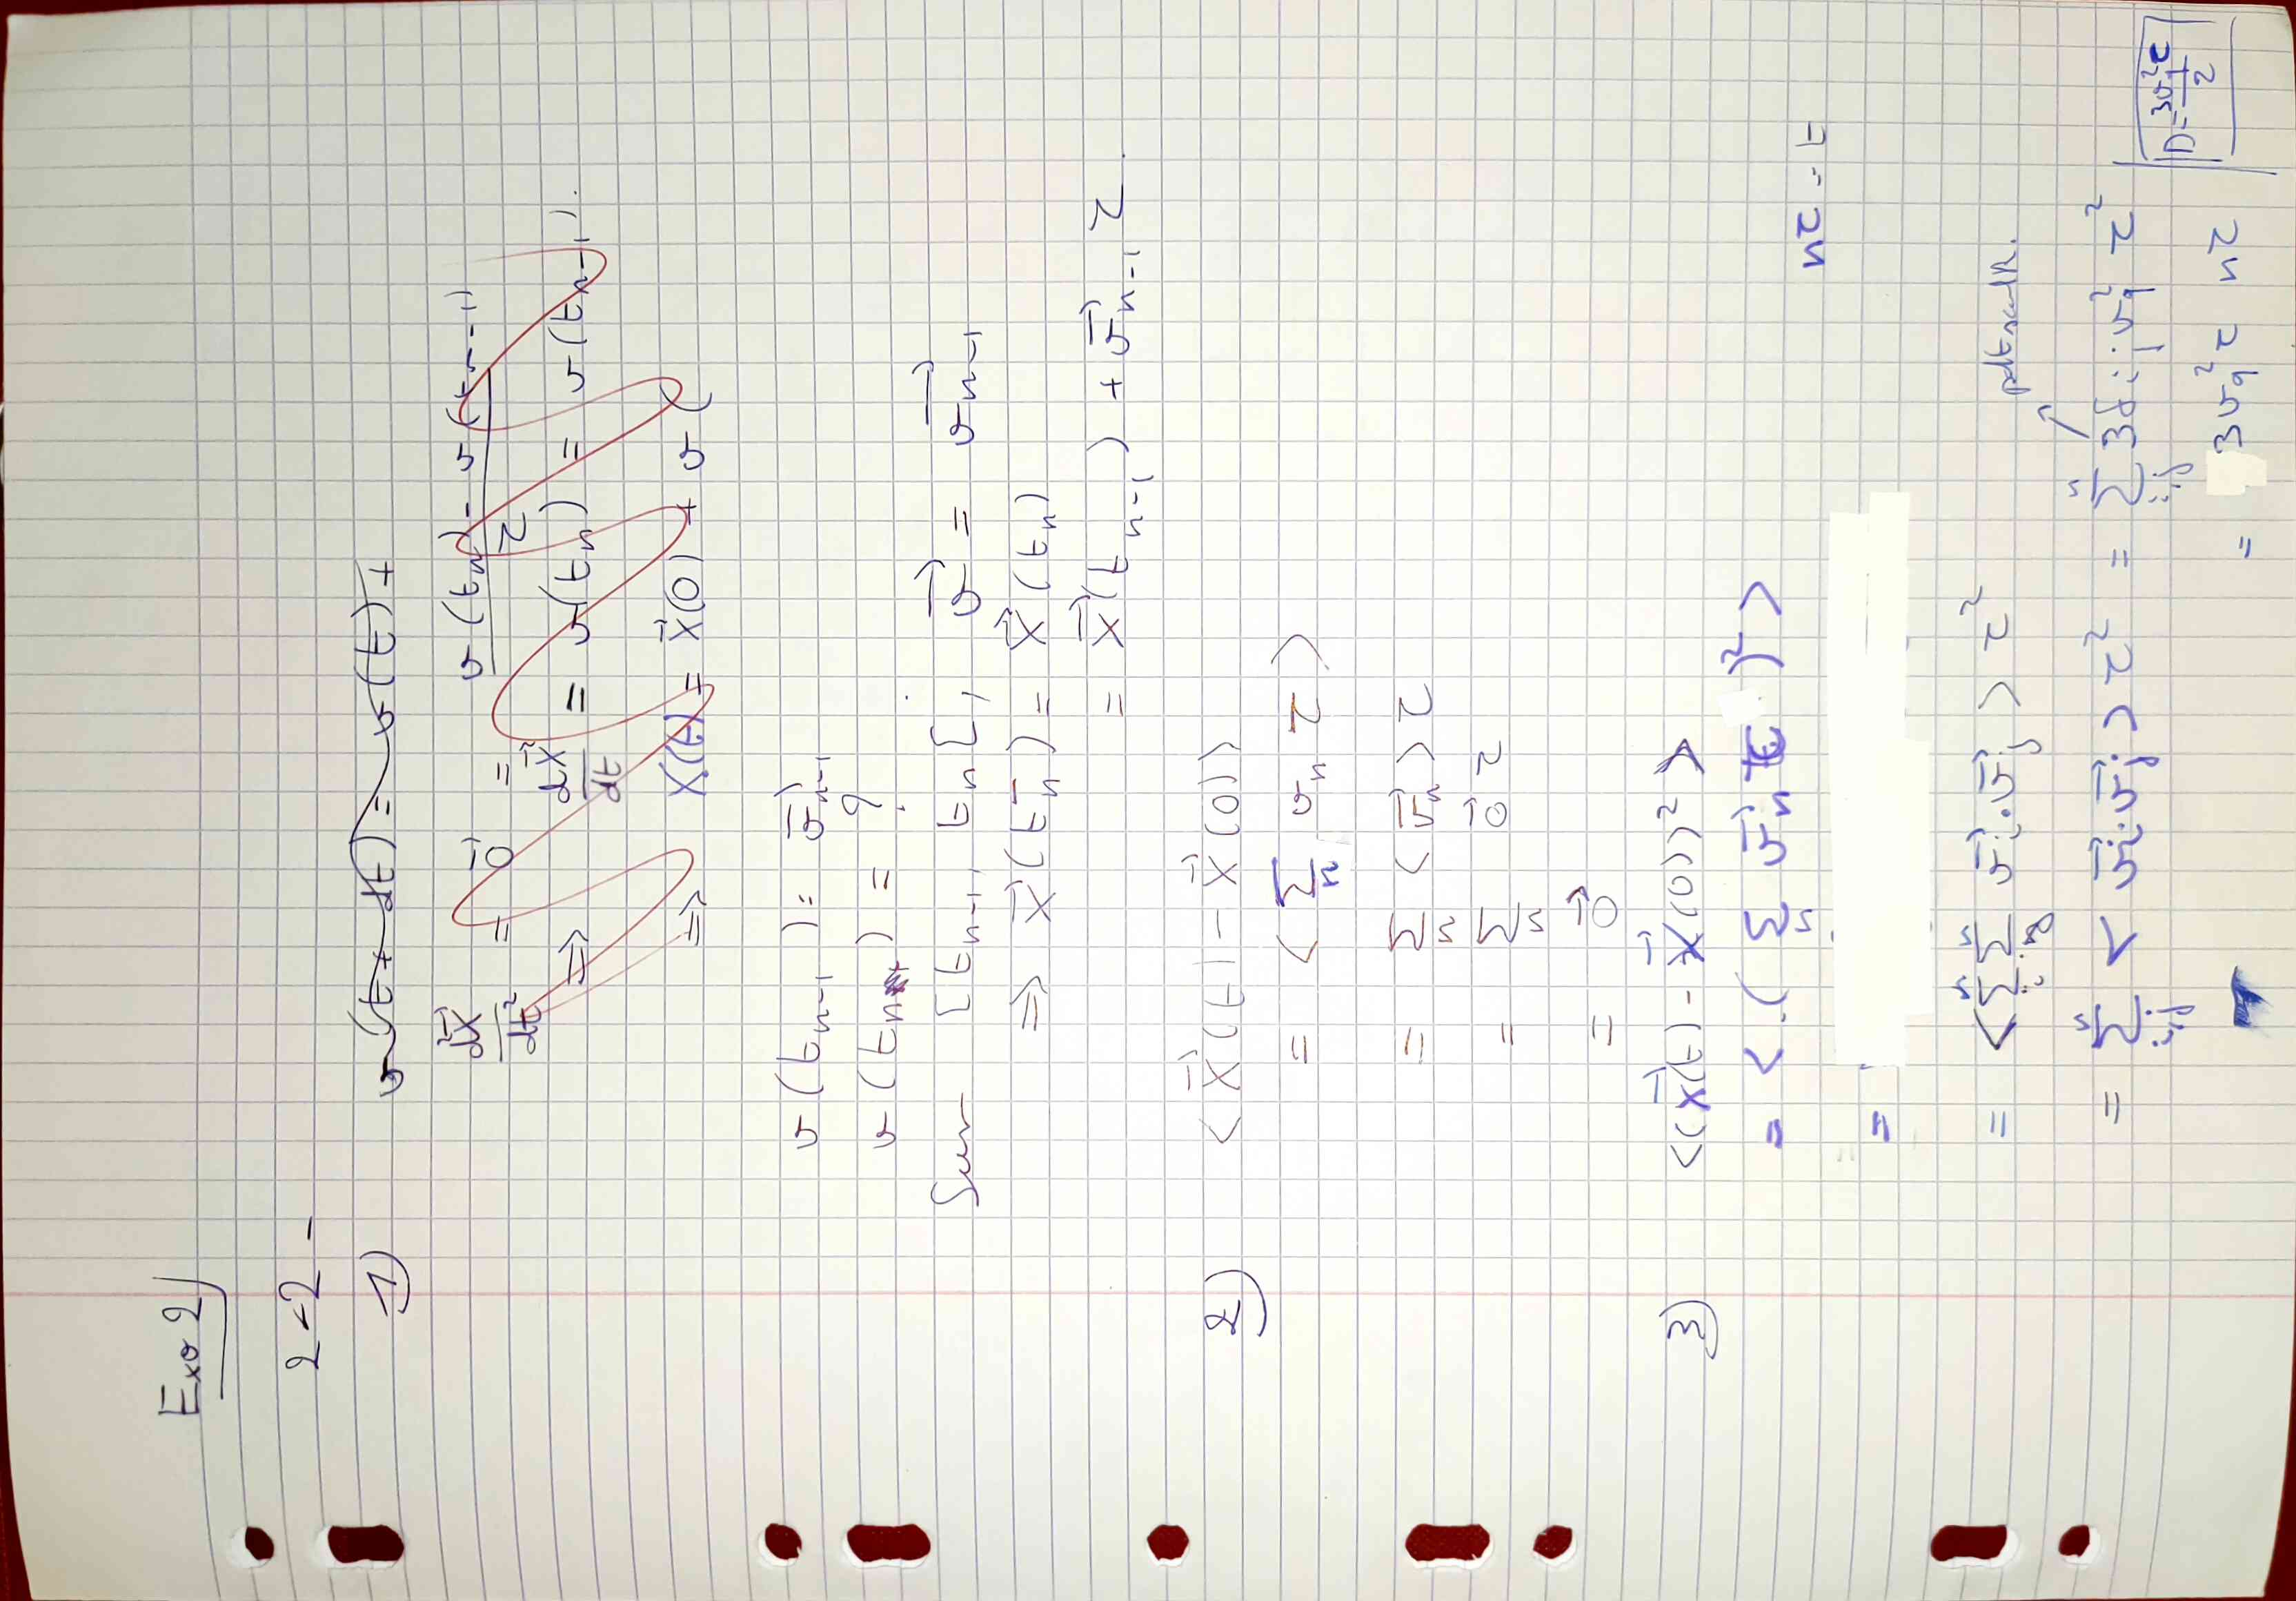 Exo 2
2-2-
1)
v(t+dt) = v(t) +
d²x⃗/dt² = 0⃗ = v(tₙ) - v(tₙ₋₁)/τ
⇒ dx⃗/dt = v(tₙ) = v(tₙ₋₁).
⇒ x(t) = x⃗(0) + v(
v(tₙ₋₁) = v⃗ₙ₋₁
v(tₙ) = ?
Sur [tₙ₋₁, tₙ[, v⃗ = v⃗ₙ₋₁
⇒ x⃗(tₙ⁻) = x⃗(tₙ)
= x⃗(tₙ₋₁) + v⃗ₙ₋₁ τ.
2) <x⃗(t) - x⃗(0)>
= < ∑ₙ vₙ τ >
= ∑ₙ <v⃗ₙ> τ
= ∑ₙ 0⃗ τ
= 0⃗
3) <(x⃗(t) - x⃗(0))²>
= < ( ∑ₙ v⃗ₙ τ )² > nτ = t
=
= < ∑ᵢⁿ ∑ⱼⁿ v⃗ᵢ.v⃗ⱼ > τ²
pdt scal R.
= ∑ᵢ,ⱼⁿ < v⃗ᵢ.v⃗ⱼ > τ² = ∑ᵢ,ⱼⁿ 3δᵢⱼ v_q² τ²
= 3v_q² τ nτ
D = 3v²τ/2